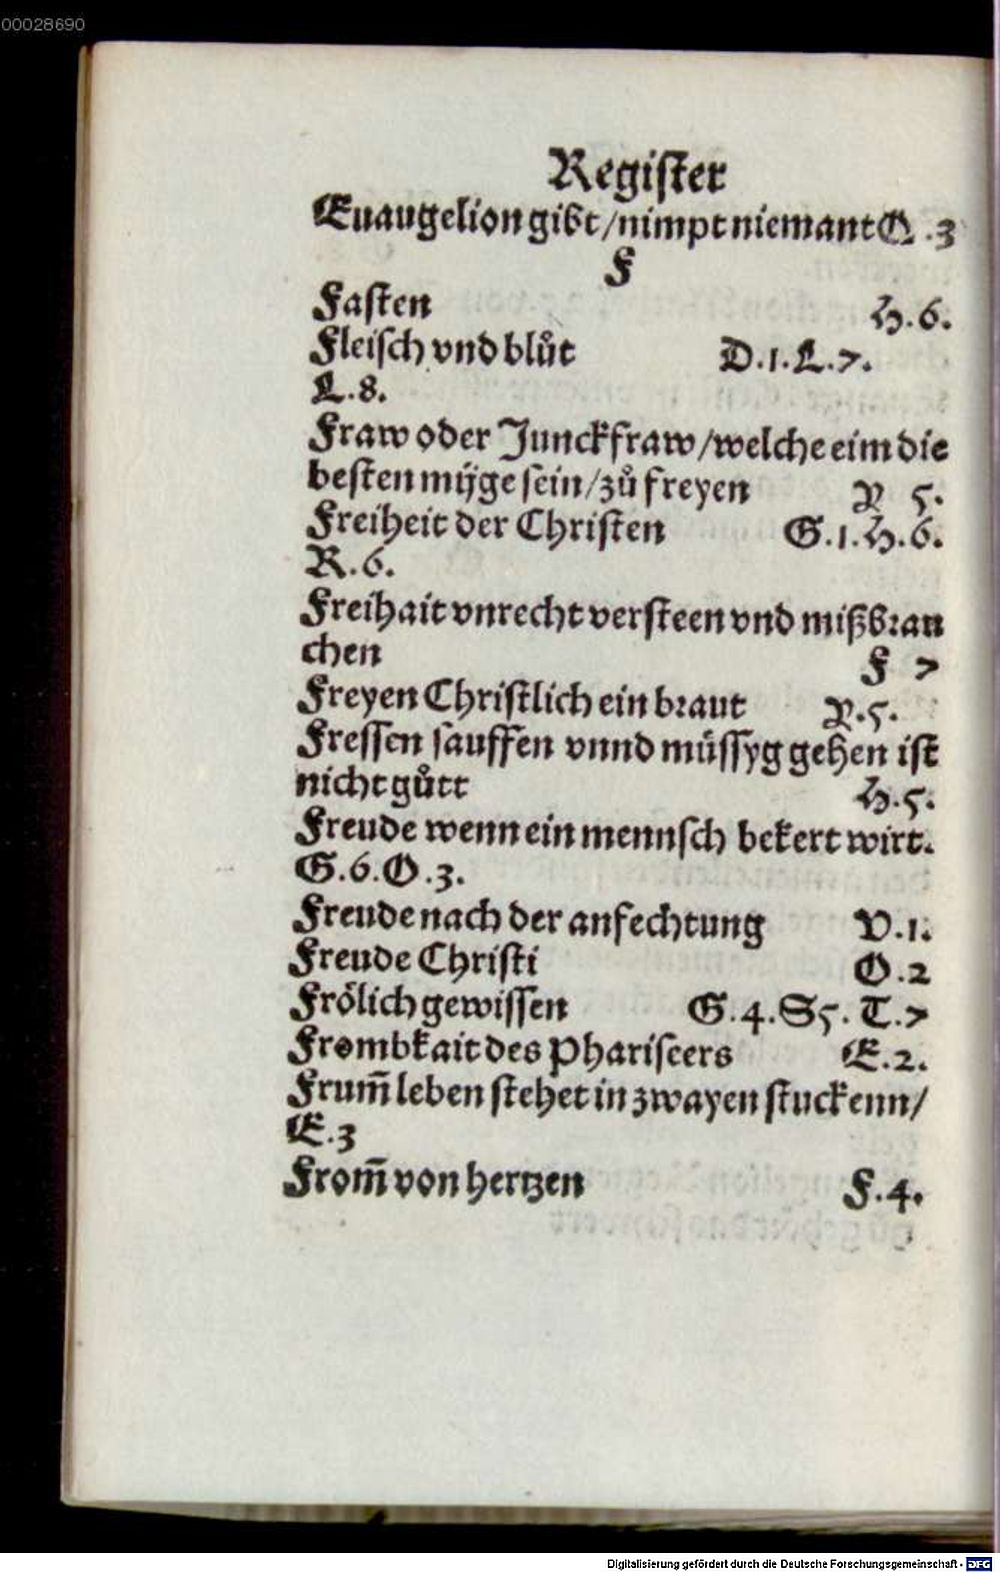 00028690
Register
Euaugelion gibt/nimpt niemant Q .3
F
Fasten H.6.
Fleisch vnd blůt D.1.L.7.
L.8.
Fraw oder Junckfraw/welche eim die
besten mÿge sein/zů freyen P 5.
Freiheit der Christen G.1.H.6.
R.6.
Freihait vnrecht versteen vnd mißbrau
chen F 7
Freyen Christlich ein braut P.5.
Fressen sauffen vnnd müssyg gehen ist
nicht gůtt H.5.
Freude wenn ein mennsch bekert wirt.
G.6.O.3.
Freude nach der anfechtung V.1.
Freude Christi O.2
Frölich gewissen G.4.S5.T.7
Frombkait des Phariseers E.2.
Frum̄ leben stehet in zwayen stuckenn/
E.3
From̄ von hertzen F.4.
Digitalisierung gefördert durch die Deutsche Forschungsgemeinschaft - DFG